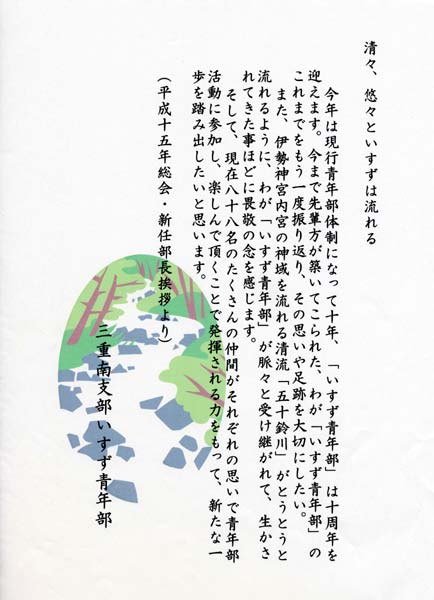 清々、悠々といすずは流れる
今年は現行青年部体制になって十年、「いすず青年部」は十周年を
迎えます。今まで先輩方が築いてこられた、わが「いすず青年部」の
これまでをもう一度振り返り、その思いや足跡を大切にしたい。
また、伊勢神宮内宮の神域を流れる清流「五十鈴川」がとうとうと
流れるように、わが「いすず青年部」が脈々と受け継がれて、生かさ
れてきた事ほどに畏敬の念を感じます。
そして、現在八十八名のたくさんの仲間がそれぞれの思いで青年部
活動に参加し、楽しんで頂くことで発揮される力をもって、新たな一
歩を踏み出したいと思います。
（平成十五年総会・新任部長挨拶より）
三重南支部いすず青年部